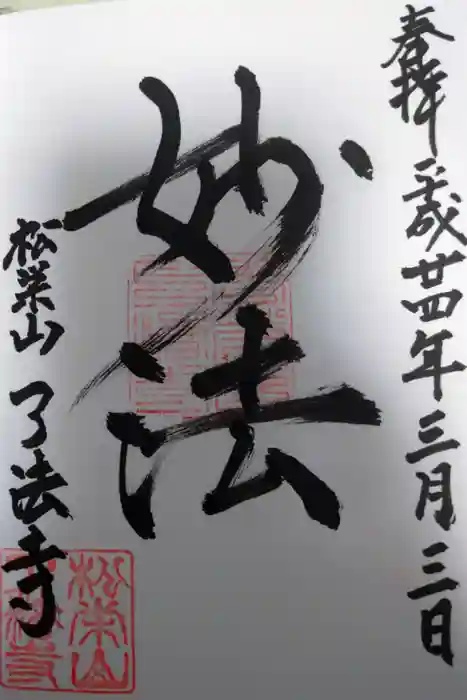 奉拝 平成廿四年三月三日
妙法
松栄山 了法寺
松栄山